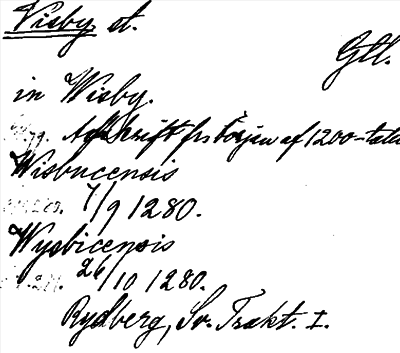 Visby st.
Gtl.
in Wisby.
Afskrift frs början af 1200-talet
Wisbucensis
7/9 1280.
Wysbicensis
26/10 1280.
Rydberg, Sv. Trakt. I.